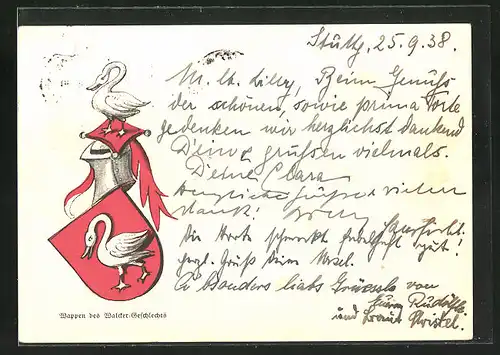 Stuttg. 25.9.38.
M. lb. Lilly, Beim Genuss
der schönen, sowie prima Torte
gedenken wir herzlichst dankend
Deiner, grüssen vielmals.
Deine Clara
Herzliche Grüsse u. vielen
Dank!
Die Torte schmeckt fabelhaft gut!
herzl. Gruß Deine
A bsonders liabs Grüessle von
Rudolf
und
Wappen des Walcker-Geschlechts